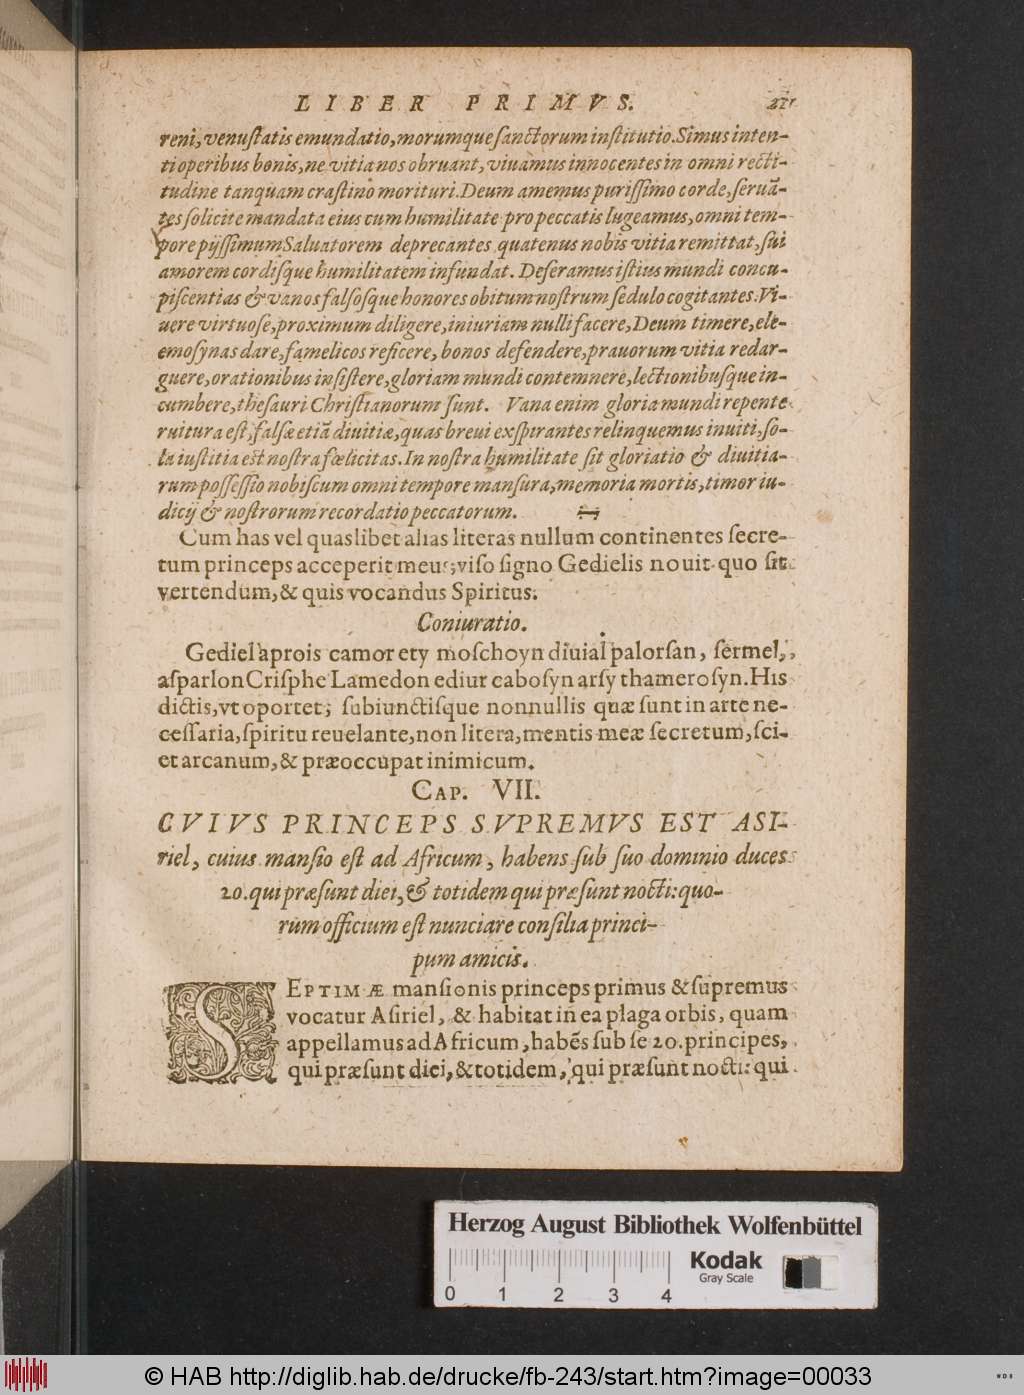 LIBER PRIMVS.
reni, venuſtatis emundatio, morumque ſanctorum inſtitutio. Simus inten-
ti operibus bonis, ne vitia nos obruant, viuamus innocentes in omni recti-
tudine tanquam craſtino morituri. Deum amemus puriſſimo corde, ſeruā-
tes ſolicite mandata eius cum humilitate pro peccatis lugeamus, omni tem-
pore pijſſimum Saluatorem deprecantes quatenus nobis vitia remittat, ſui
amorem cordiſque humilitatem infundat. Deſeramus iſtius mundi concu-
piſcentias & vanos falſoſque honores obitum noſtrum ſedulo cogitantes. Vi-
uere virtuoſe, proximum diligere, iniuriam nulli facere, Deum timere, ele-
emoſynas dare, famelicos reficere, bonos defendere, prauorum vitia redar-
guere, orationibus inſiſtere, gloriam mundi contemnere, lectionibuſque in-
cumbere, theſauri Chriſtianorum ſunt. Vana enim gloria mundi repente
ruitura eſt, falſæ etiā diuitiæ, quas breui exſpirantes relinquemus inuiti, ſo-
la iuſtitia eſt noſtra fœlicitas. In noſtra humilitate ſit gloriatio & diuitia-
rum poſſeſſio nobiſcum omni tempore manſura, memoria mortis, timor iu-
dicij & noſtrorum recordatio peccatorum.
Cum has vel quaslibet alias literas nullum continentes ſecre-
tum princeps acceperit meus, viſo ſigno Gedielis nouit quo ſit
vertendum, & quis vocandus Spiritus.
Coniuratio.
Gediel aprois camor ety moſchoyn diuial palorſan, ſermel,
aſparlon Criſphe Lamedon ediur caboſyn arſy thameroſyn. His
dictis, vt oportet; ſubiunctiſque nonnullis quæ ſunt in arte ne-
ceſſaria, ſpiritu reuelante, non litera, mentis meæ ſecretum, ſci-
et arcanum, & præoccupat inimicum.
CAP. VII.
CVIVS PRINCEPS SVPREMVS EST ASI-
riel, cuius manſio eſt ad Africum, habens ſub ſuo dominio duces
20. qui præſunt diei, & totidem qui præſunt nocti: quo-
rum officium eſt nunciare conſilia princi-
pum amicis.
SEPTIMÆ manſionis princeps primus & ſupremus
vocatur Aſiriel, & habitat in ea plaga orbis, quam
appellamus ad Africum, habēs ſub ſe 20. principes,
qui præſunt diei, & totidem, qui præſunt nocti: qui
Herzog August Bibliothek Wolfenbüttel
Kodak
Gray Scale
0 1 2 3 4
© HAB http://diglib.hab.de/drucke/fb-243/start.htm?image=00033